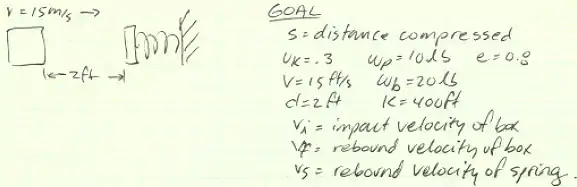 v = 15m/s →
←2ft→
GOAL
s = distance compressed
uk = .3 wp = 10lb e = 0.8
V = 15ft/s wb = 20lb
d = 2ft K = 400ft
vi = impact velocity of box
vf = rebound velocity of box
vs = rebound velocity of spring.